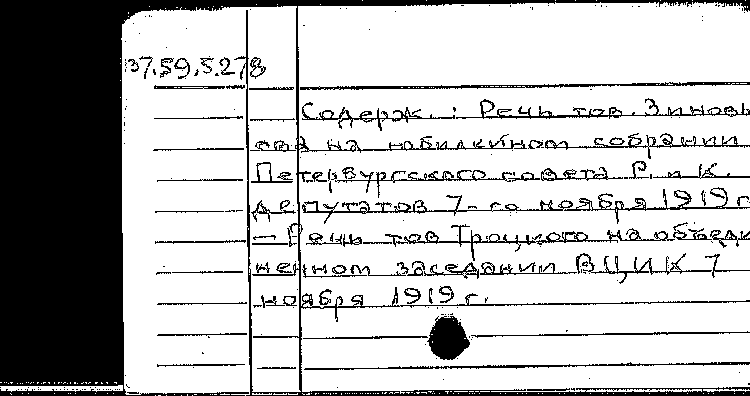 37.59.5.278
Содерж. : Речь тов. Зиновь
ева на юбилейном собрании
Петербургского совета Р. и К.
депутатов 7-го ноября 1919 г
— Речь тов Троцкого на объеди
ненном заседании ВЦИК 7
ноября 1919 г.